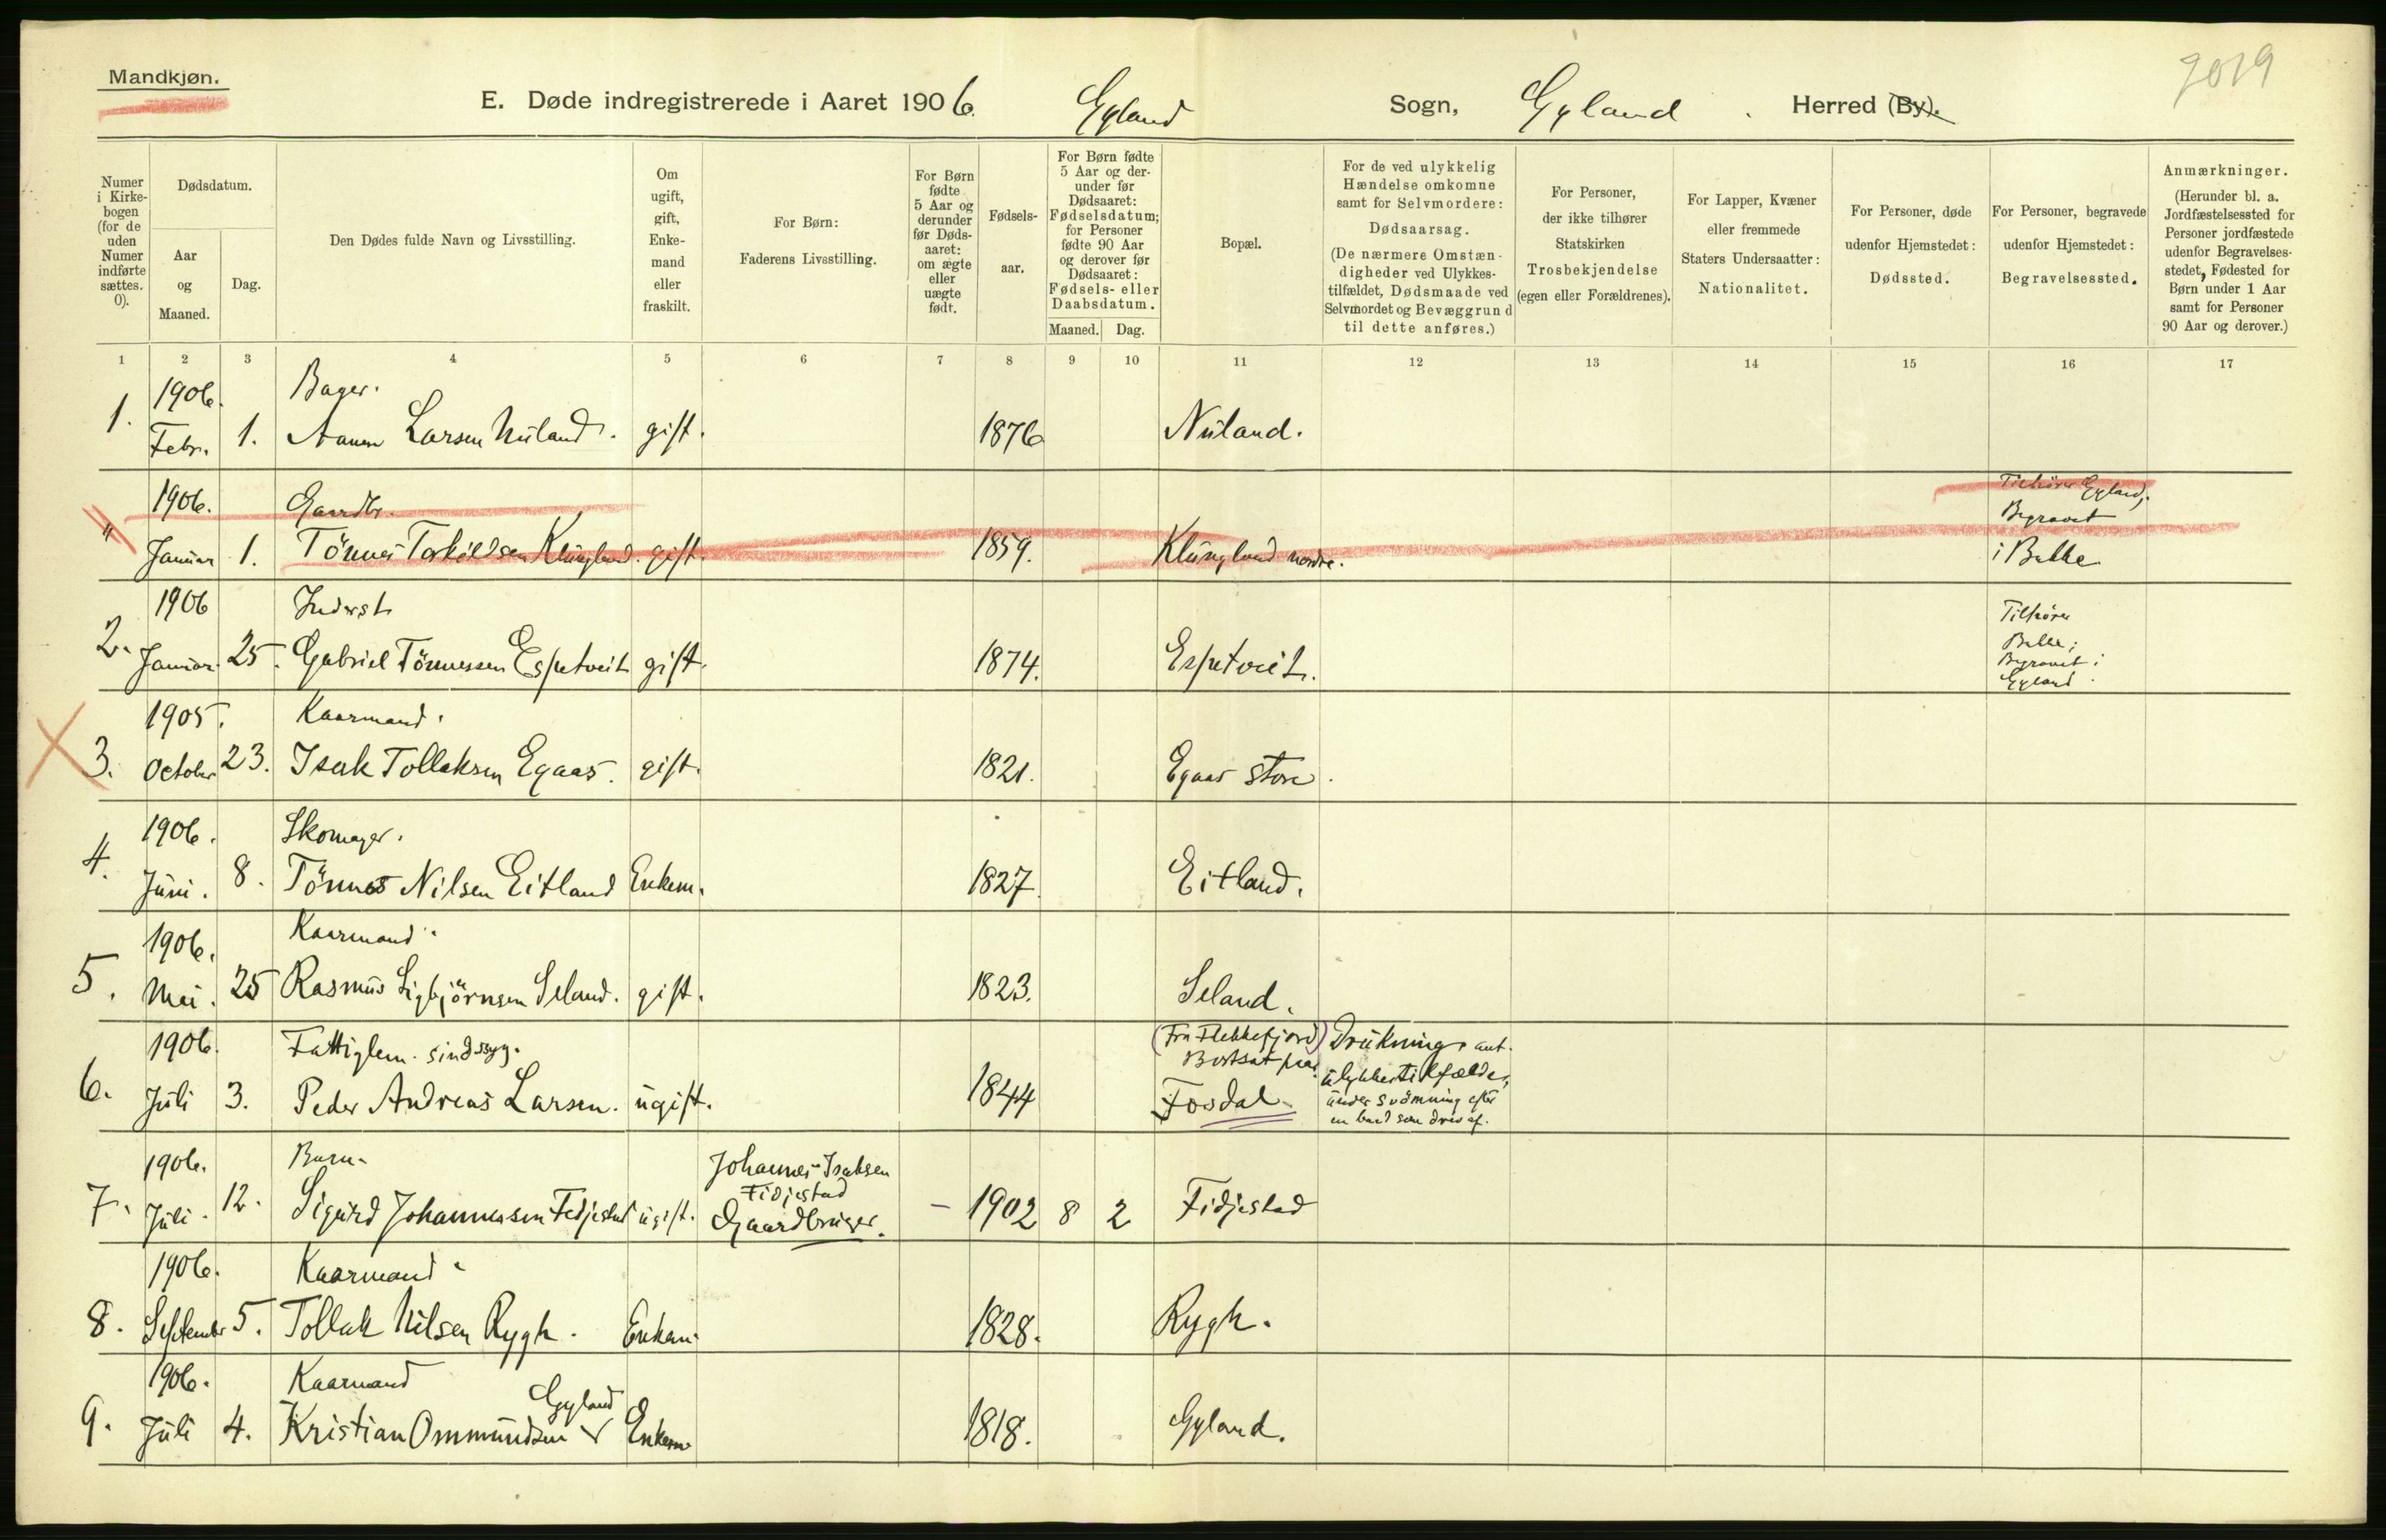 Mandkjøn.
E. Døde indregistrerede i Aaret 1906. Gyland Sogn, Gyland. Herred (By).
Numer i Kirkebogen (for de uden Numer indførte sættes. 0).
Dødsdatum.
Aar og Maaned.
Dag.
Den Dødes fulde Navn og Livsstilling.
Om ugift, gift, Enkemand eller fraskilt.
For Børn: Faderens Livsstilling.
For Børn fødte 5 Aar og derunder før Dødsaaret: om ægte eller uægte født.
Fødselsaar.
For Børn fødte 5 Aar og derunder før Dødsaaret: Fødselsdatum; for Personer fødte 90 Aar og derover før Dødsaaret: Fødsels- eller Daabsdatum.
Maaned. Dag.
Bopæl.
For de ved ulykkelig Hændelse omkomne samt for Selvmordere: Dødsaarsag. (De nærmere Omstændigheder ved Ulykkestilfældet, Dødsmaade ved Selvmordet og Bevæggrund til dette anføres.)
For Personer, der ikke tilhører Statskirken Trosbekjendelse (egen eller Forældrenes).
For Lapper, Kvæner eller fremmede Staters Undersaatter: Nationalitet.
For Personer, døde udenfor Hjemstedet: Dødssted.
For Personer, begravede udenfor Hjemstedet: Begravelsessted.
Anmærkninger. (Herunder bl. a. Jordfæstelsessted for Personer jordfæstede udenfor Begravelsesstedet, Fødested for Børn under 1 Aar samt for Personer 90 Aar og derover.)
1 2 3 4 5 6 7 8 9 10 11 12 13 14 15 16 17
1906. Bager.
1. Febr. 1. Aanen Larsen Nuland. gift. 1876 Nuland.
1906. Gaardbr. Tilhører Gyland;
Begravet
" Januar 1. Tönnes Torkildsen Klungland. gift. 1859. Klungland nordre. i Bakke
1906 Inderst Tilhører
Bakke;
2. Januar. 25. Gabriel Tönnessen Espetveit gift. 1874. Espetveit. Begravet i
Gyland.
1905. Kaarmand.
3. October 23. Isak Tollaksen Egaas. gift. 1821. Egaas store.
1906. Skomager.
4. Juni. 8. Tönnes Nilsen Eitland Enkem. 1827. Eitland.
1906. Kaarmand.
5. Mai. 25 Rasmus Sigbjörnsen Seland. gift. 1823. Seland.
1906. Fattiglem. sindssyg. (Fra Flekkefjord) Drukning, ant.
Bortsat paa ulykkestilfælde,
6. Juli 3. Peder Andreas Larsen. ugift. 1844 Fosdal under svömning efter
en baad som drev af.
1906. Barn. Johannes Isaksen
Fidjestad
7. Juli. 12. Sigurd Johannessen Fidjestad ugift. Gaardbruger. – 1902 8 2 Fidjestad
1906. Kaarmand.
8. September 5. Tollak Nilsen Rygh. Enkem. 1828. Rygh.
1906. Kaarmand Gyland
9. Juli 4. Kristian Ommundsen Enkem 1818. Gyland.